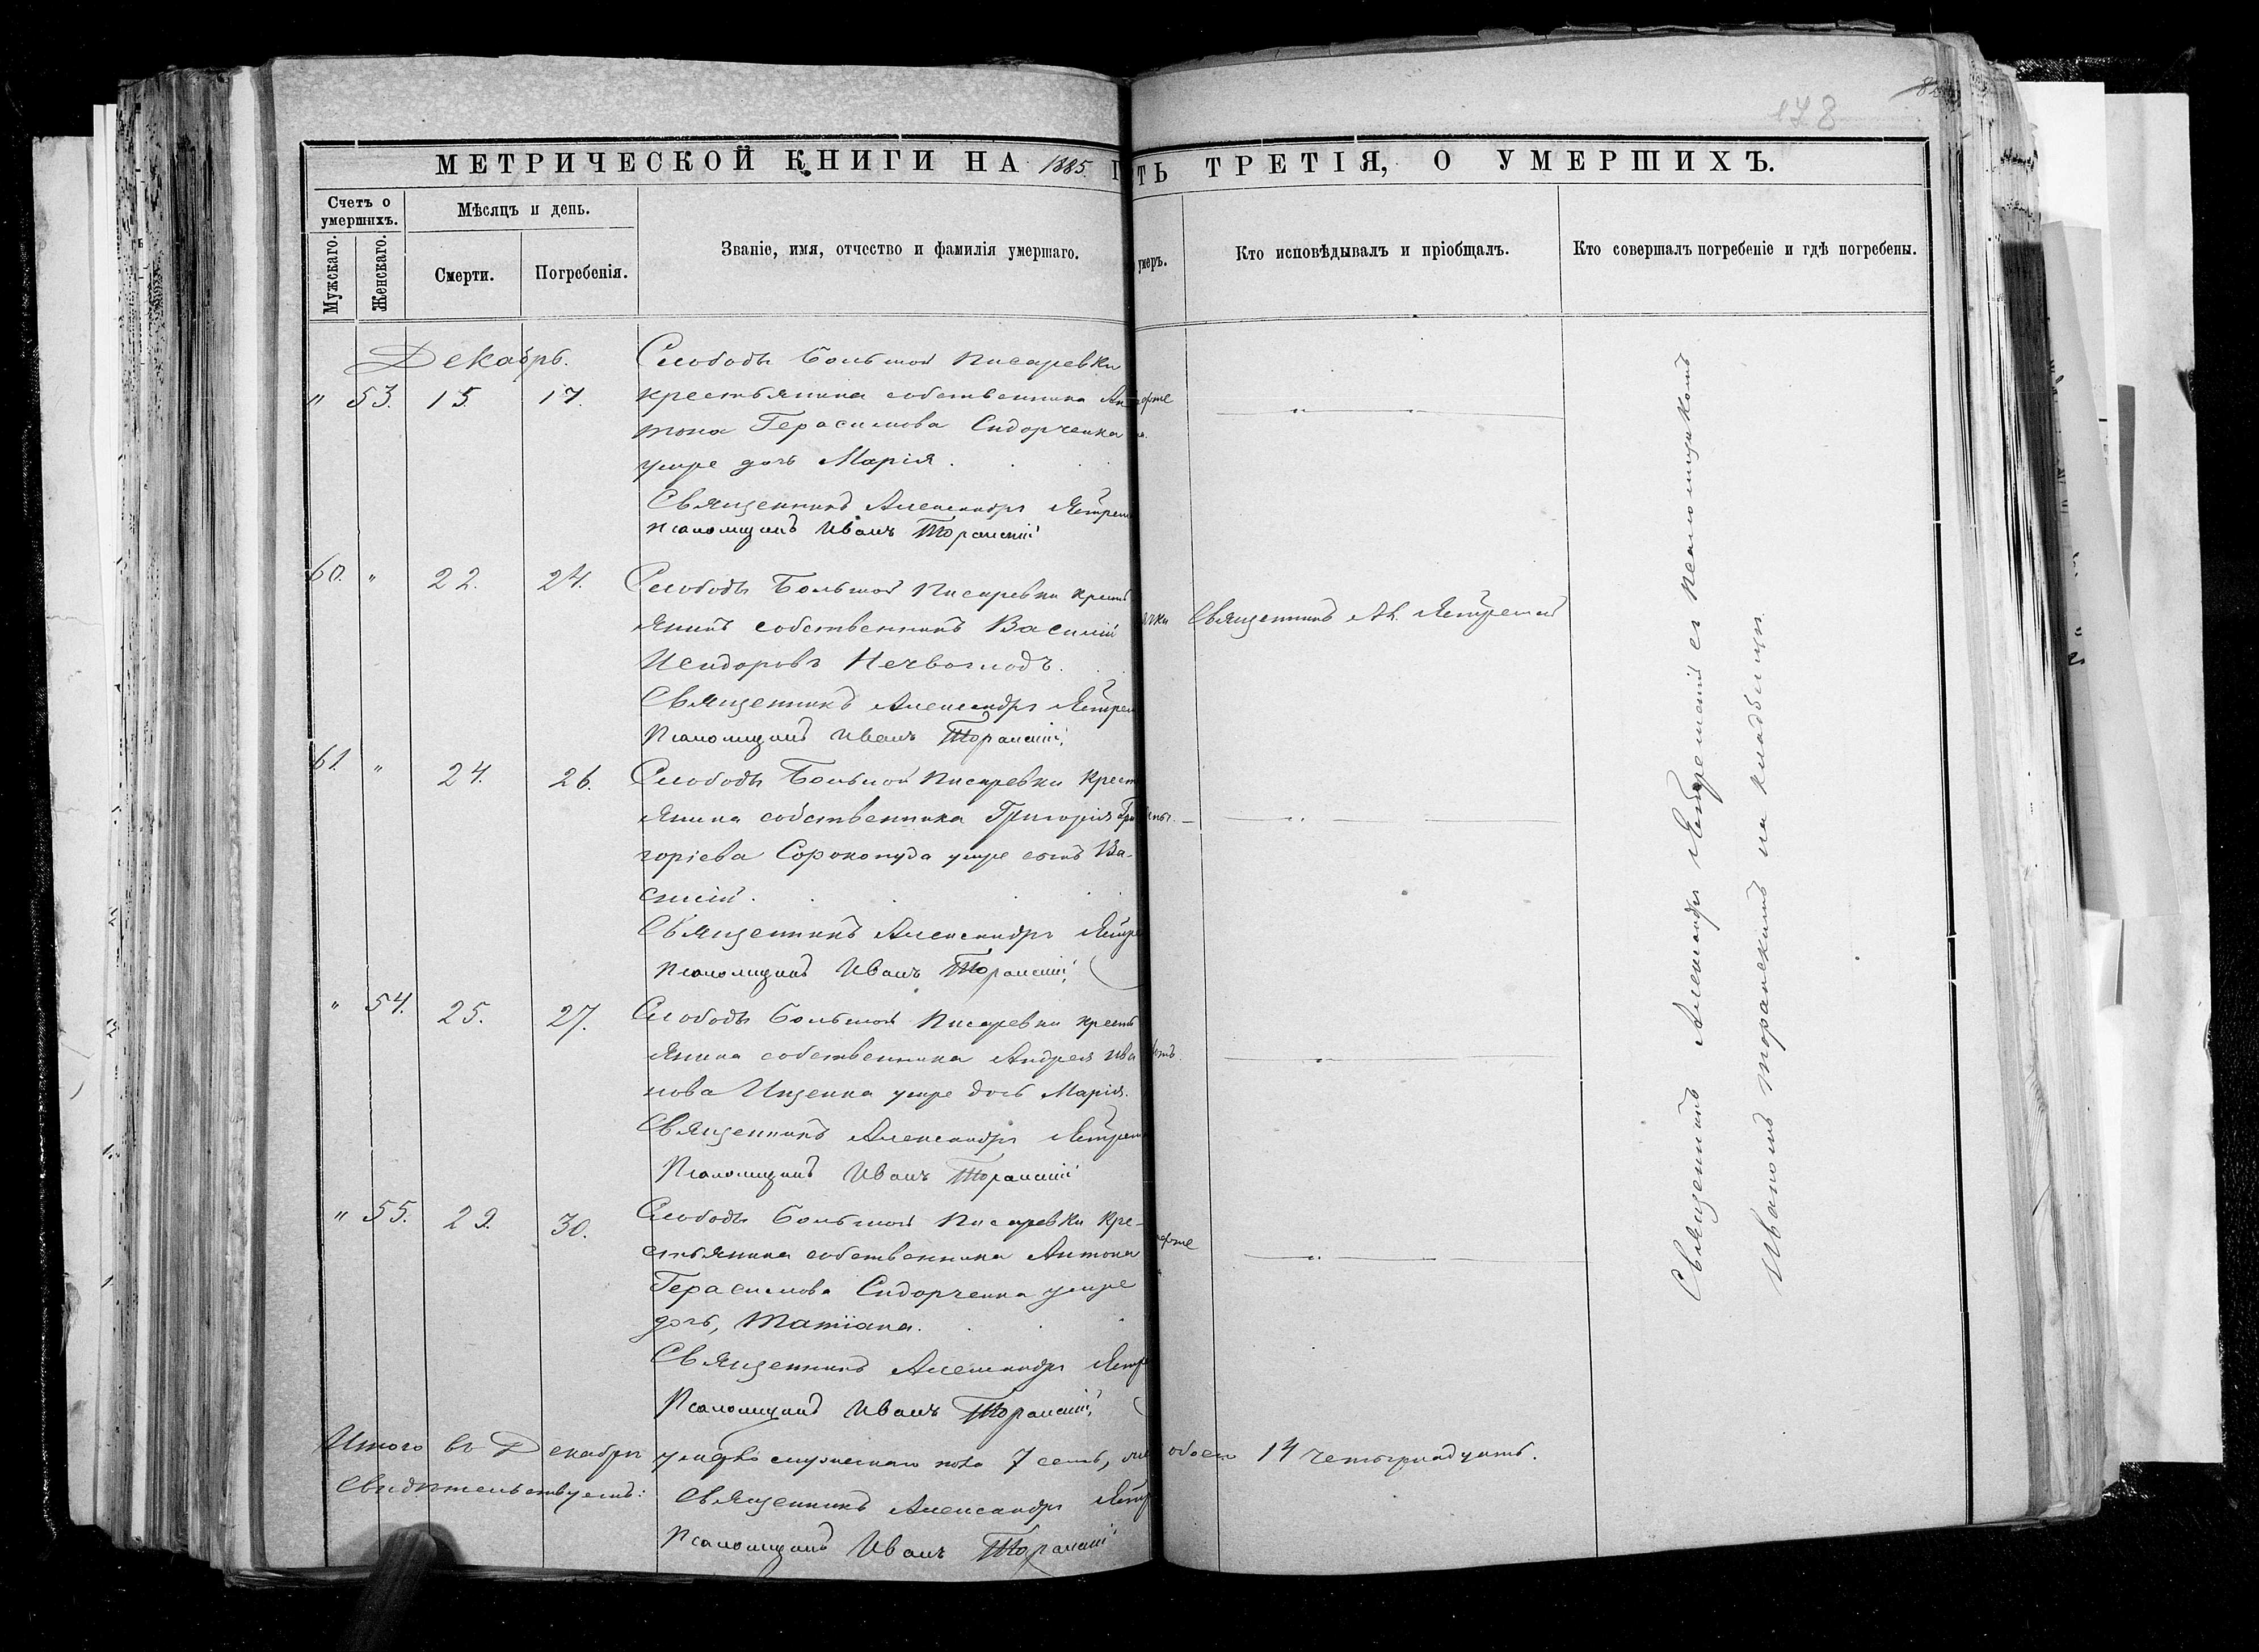 МЕТРИЧЕСКОЙ КНИГИ НА 1885
Счетъ о умершихъ.
Мужскаго.
Женскаго.
Мѣсяцъ и день.
Смерти.
Погребенія.
Званіе, имя, отчество и фамилія умершаго.
Декабрь.
Слободы Большой Писаревки
" 53. 15. 17. крестьянина собственника Ан
тона Герасимова Сидорченка
умре дочь Марія.
Священникъ Александръ
Псаломщикъ Иванъ Торанскій
60. " 22. 24. Слободы Большой Писаревки крестъ
янинъ собственникъ Василій
Исидоровъ Нечволодъ.
Священникъ Александръ
Псаломщикъ Иванъ Торанскій
61. " 24. 26. Слободы Большой Писаревки крест
янина собственника Григорія Гри
горіева Сорокопуда умре сынъ Ва-
силій.
Священникъ Александръ
Псаломщикъ Иванъ Торанскій
" 54. 25. 27. Слободы Большой Писаревки кресть
янина собственника Андрея Ива
нова Ищенка умре дочь Марія.
Священникъ Александръ
Псаломщикъ Иванъ Торанскій
" 55. 29. 30. Слободы Большой Писаревки кре-
стьянина собственника Антона
Герасимова Сидорченка умре
дочь, Татіана.
Священникъ Александръ
Псаломщикъ Иванъ Торанскій
Итого въ Декабрѣ умерло мужескаго пола 7 семь,
Свидѣтельствуемъ:
Священникъ Александръ
Псаломщикъ Иванъ Торанскій
178
ТЬ ТРЕТІЯ, О УМЕРШИХЪ.
умеръ.
Кто исповѣдывалъ и пріобщалъ.
Кто совершалъ погребеніе и гдѣ погребены.
"
Священникъ Ал. Ястремскій
"
"
"
обоего 14 четырнадцать.
Священникъ Александръ Ястремскій съ псаломщикомъ
Иваномъ Торанскимъ на кладбищѣ.